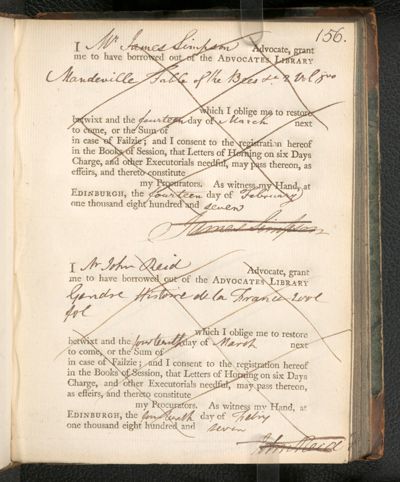 156.
I Mr James Simpson Advocate, grant
me to have borrowed out of the ADVOCATES LIBRARY
Mandeville Fable of the Bees &c 2 Vol 8vo
which I oblige me to restore
betwixt and the fourteen day of March next
to come, or the Sum of
in case of Failzie; and I consent to the registration hereof
in the Books of Session, that Letters of Horning on six Days
Charge, and other Executorials needful, may pass thereon, as
effeirs, and thereto constitute
my Procurators. As witness my Hand, at
EDINBURGH, the fourteen day of February
one thousand eight hundred and seven
James Simpson
I Mr John Reid Advocate, grant
me to have borrowed out of the ADVOCATES LIBRARY
Histoire de la France
fol
which I oblige me to restore
betwixt and the fourteenth day of March next
to come, or the Sum of
in case of Failzie; and I consent to the registration hereof
in the Books of Session, that Letters of Horning on six Days
Charge, and other Executorials needful, may pass thereon,
as effeirs, and thereto constitute
my Procurators. As witness my Hand, at
EDINBURGH, the day of Feby
one thousand eight hundred and seven
John Reid